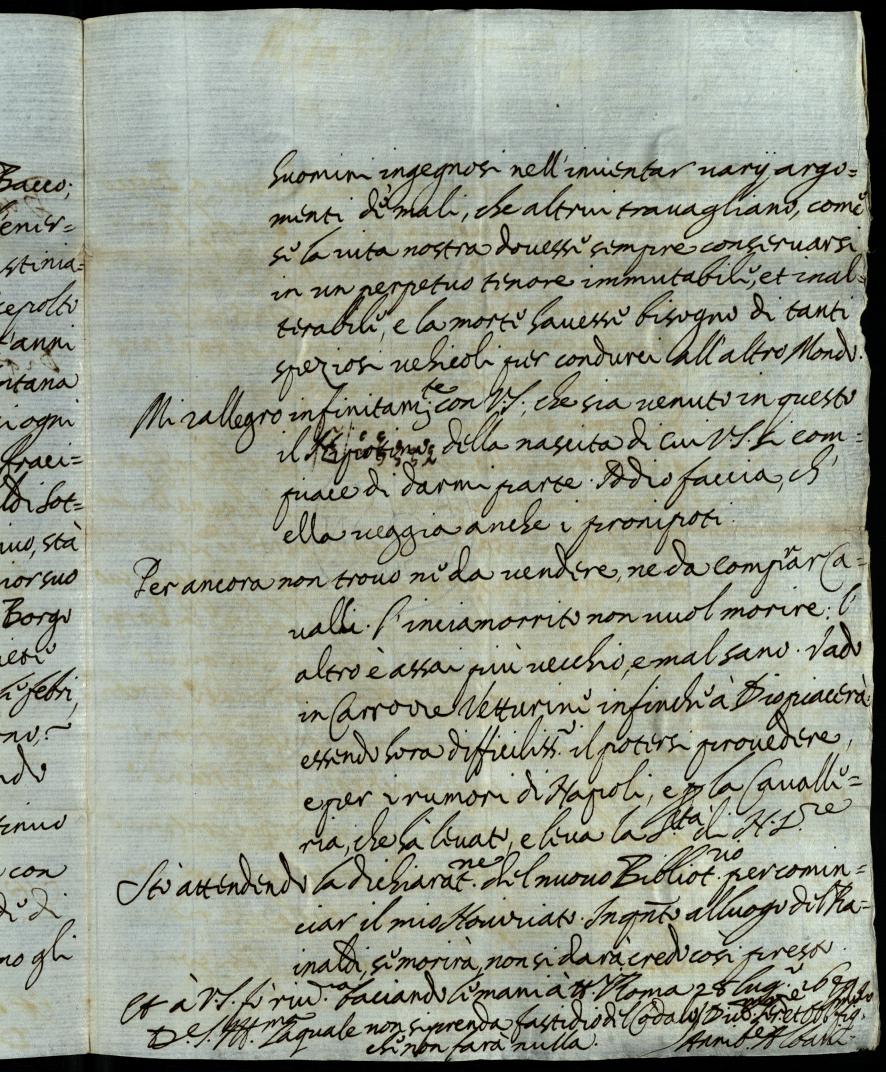 Bacco;
enir=
stinia=
sepolto
t'anni
ntana
ci ogni
fraci=
di Sot=
ivo, stà
mor suo
Borgo
ieti
febri,
no,
ndo
tinuo
con
di di
no gli
huomini ingegnosi nell'inventar varij argo=
menti dè mali, che altrui travagliano, comè
sè la vita nostra dovessè sempre conservarsi
in un perpetuo tenore immutabilè, et inal=
terabilè, e la mortè havessè bisogno di tanti
speziosi vehicoli per condurci all'altro Mondo.
Mi rallegro infinitam.te con V.S., che sia venuto in questo
il della nascita di cui V.S. si com=
piace di darmi parte. Iddio faccia, ch'
ella veggia anche i pronipoti.
Per ancora non trovo nè da vendere, ne da comprar Ca=
valli. L'inciamorrito non vuol morire: l'
altro è assai più vecchio, e mal sano. Vado
in Carrozze Vetturinè infinchè à Dio piacerà
essendo hora difficiliss.o il potersi provedere,
e per i rumori di Napoli, e p la Cavalle=
ria, che hà levato, e leva la S.tà di N. S.re
Stò attendendo la dichiarat.ne del nuovo Bibliot.rio per comin=
ciar il mio Novitiato. In q.nto al luogo del Ra=
inaldi, sè morirà, non si darà credo così presto.
Et à V.S. riv.a baciando lè mani Roma 28 lug.o
D. V.S. Ill.ma La quale non si prenda fastidio di
chè non farà nulla.